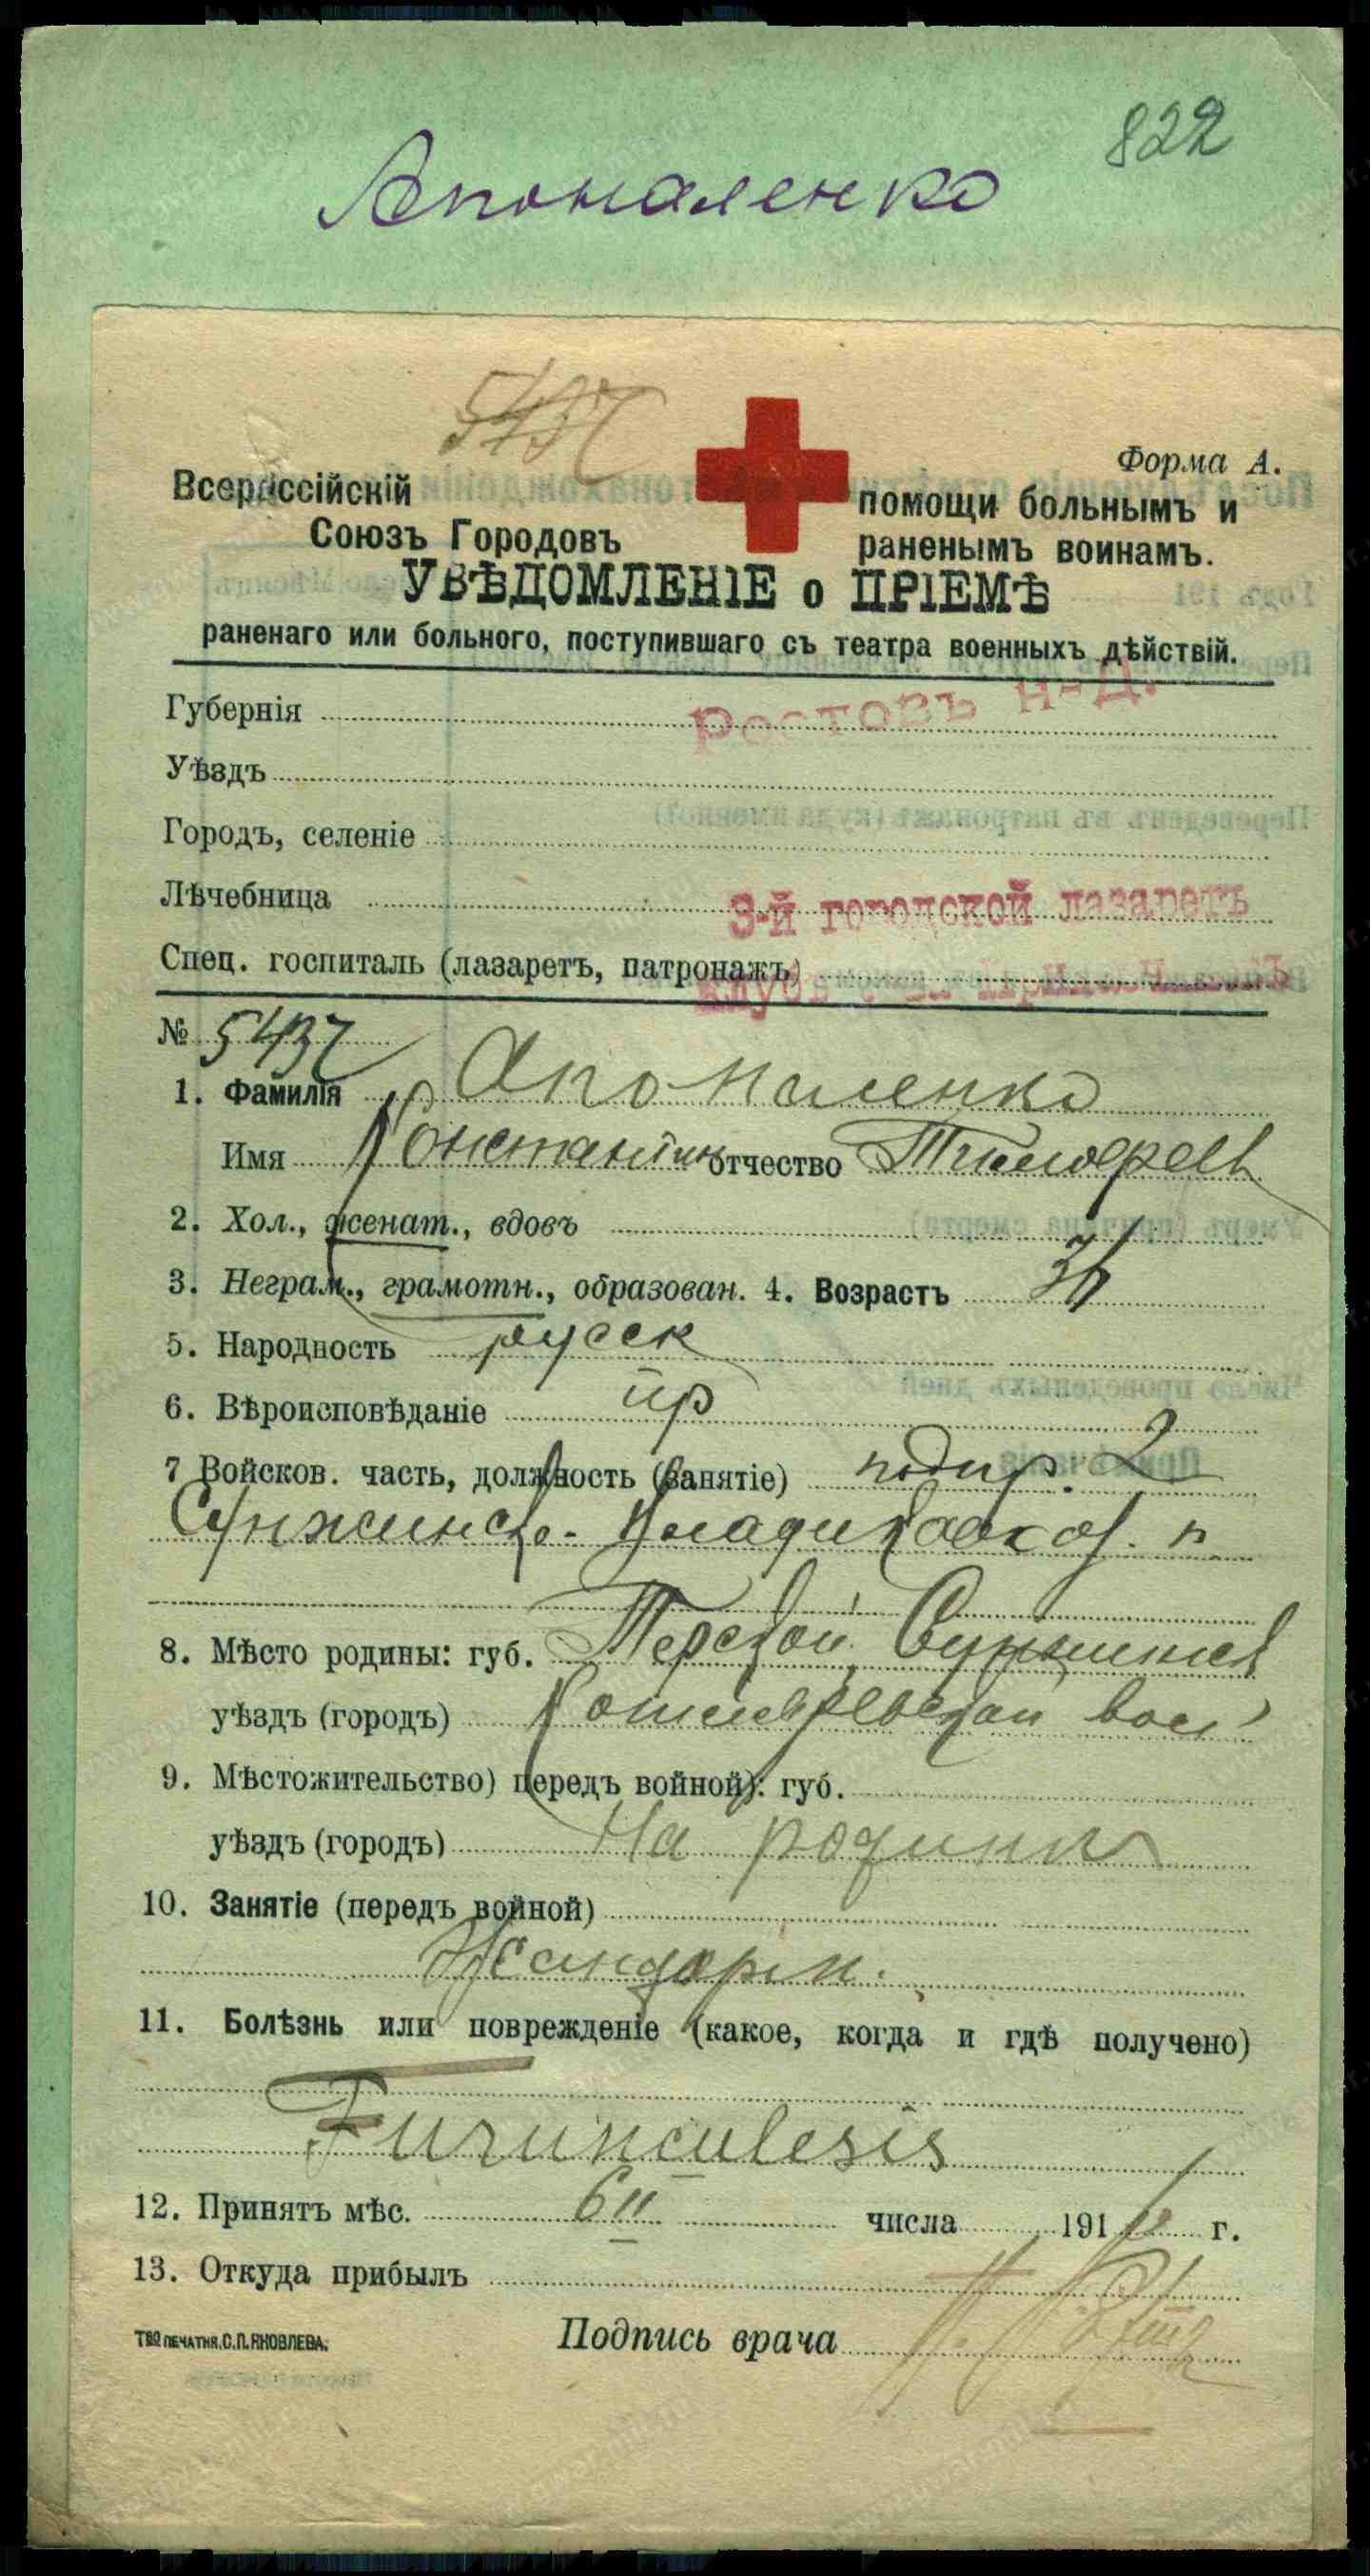 822
Апоналенко
5437
Форма А.
Всероссійскій
Союзъ Городовъ
помощи больнымъ и
раненымъ воинамъ.
УВѢДОМЛЕНІЕ о ПРІЕМѢ
раненаго или больного, поступившаго съ театра военныхъ дѣйствій.
Губернія Ростовъ н-Д.
Уѣздъ
Городъ, селеніе
Лѣчебница 3-й городской лазаретъ
Спец. госпиталь (лазаретъ, патронажъ)
№ 5437
1. Фамилія Апоналенко
Имя Константин отчество Тимофеев
2. Хол., женат., вдовъ
3. Неграм., грамотн., образован. 4. Возрастъ
5. Народность русск
6. Вѣроисповѣданіе пр
7 Войсков. часть, должность (занятіе) подпр. 2
Сунженско-Владикавказ. п.
8. Мѣсто родины: губ. Терской Сунженск
уѣздъ (городъ) вол
9. Мѣстожительство) передъ войной): губ.
уѣздъ (городъ) На родинѣ
10. Занятіе (передъ войной)
11. Болѣзнь или поврежденіе (какое, когда и гдѣ получено)
Furunculesis
12. Принятъ мѣс. 6 II числа 191 г.
13. Откуда прибылъ
Подпись врача
Т-во ПЕЧАТНЯ.С.П.ЯКОВЛЕВА.